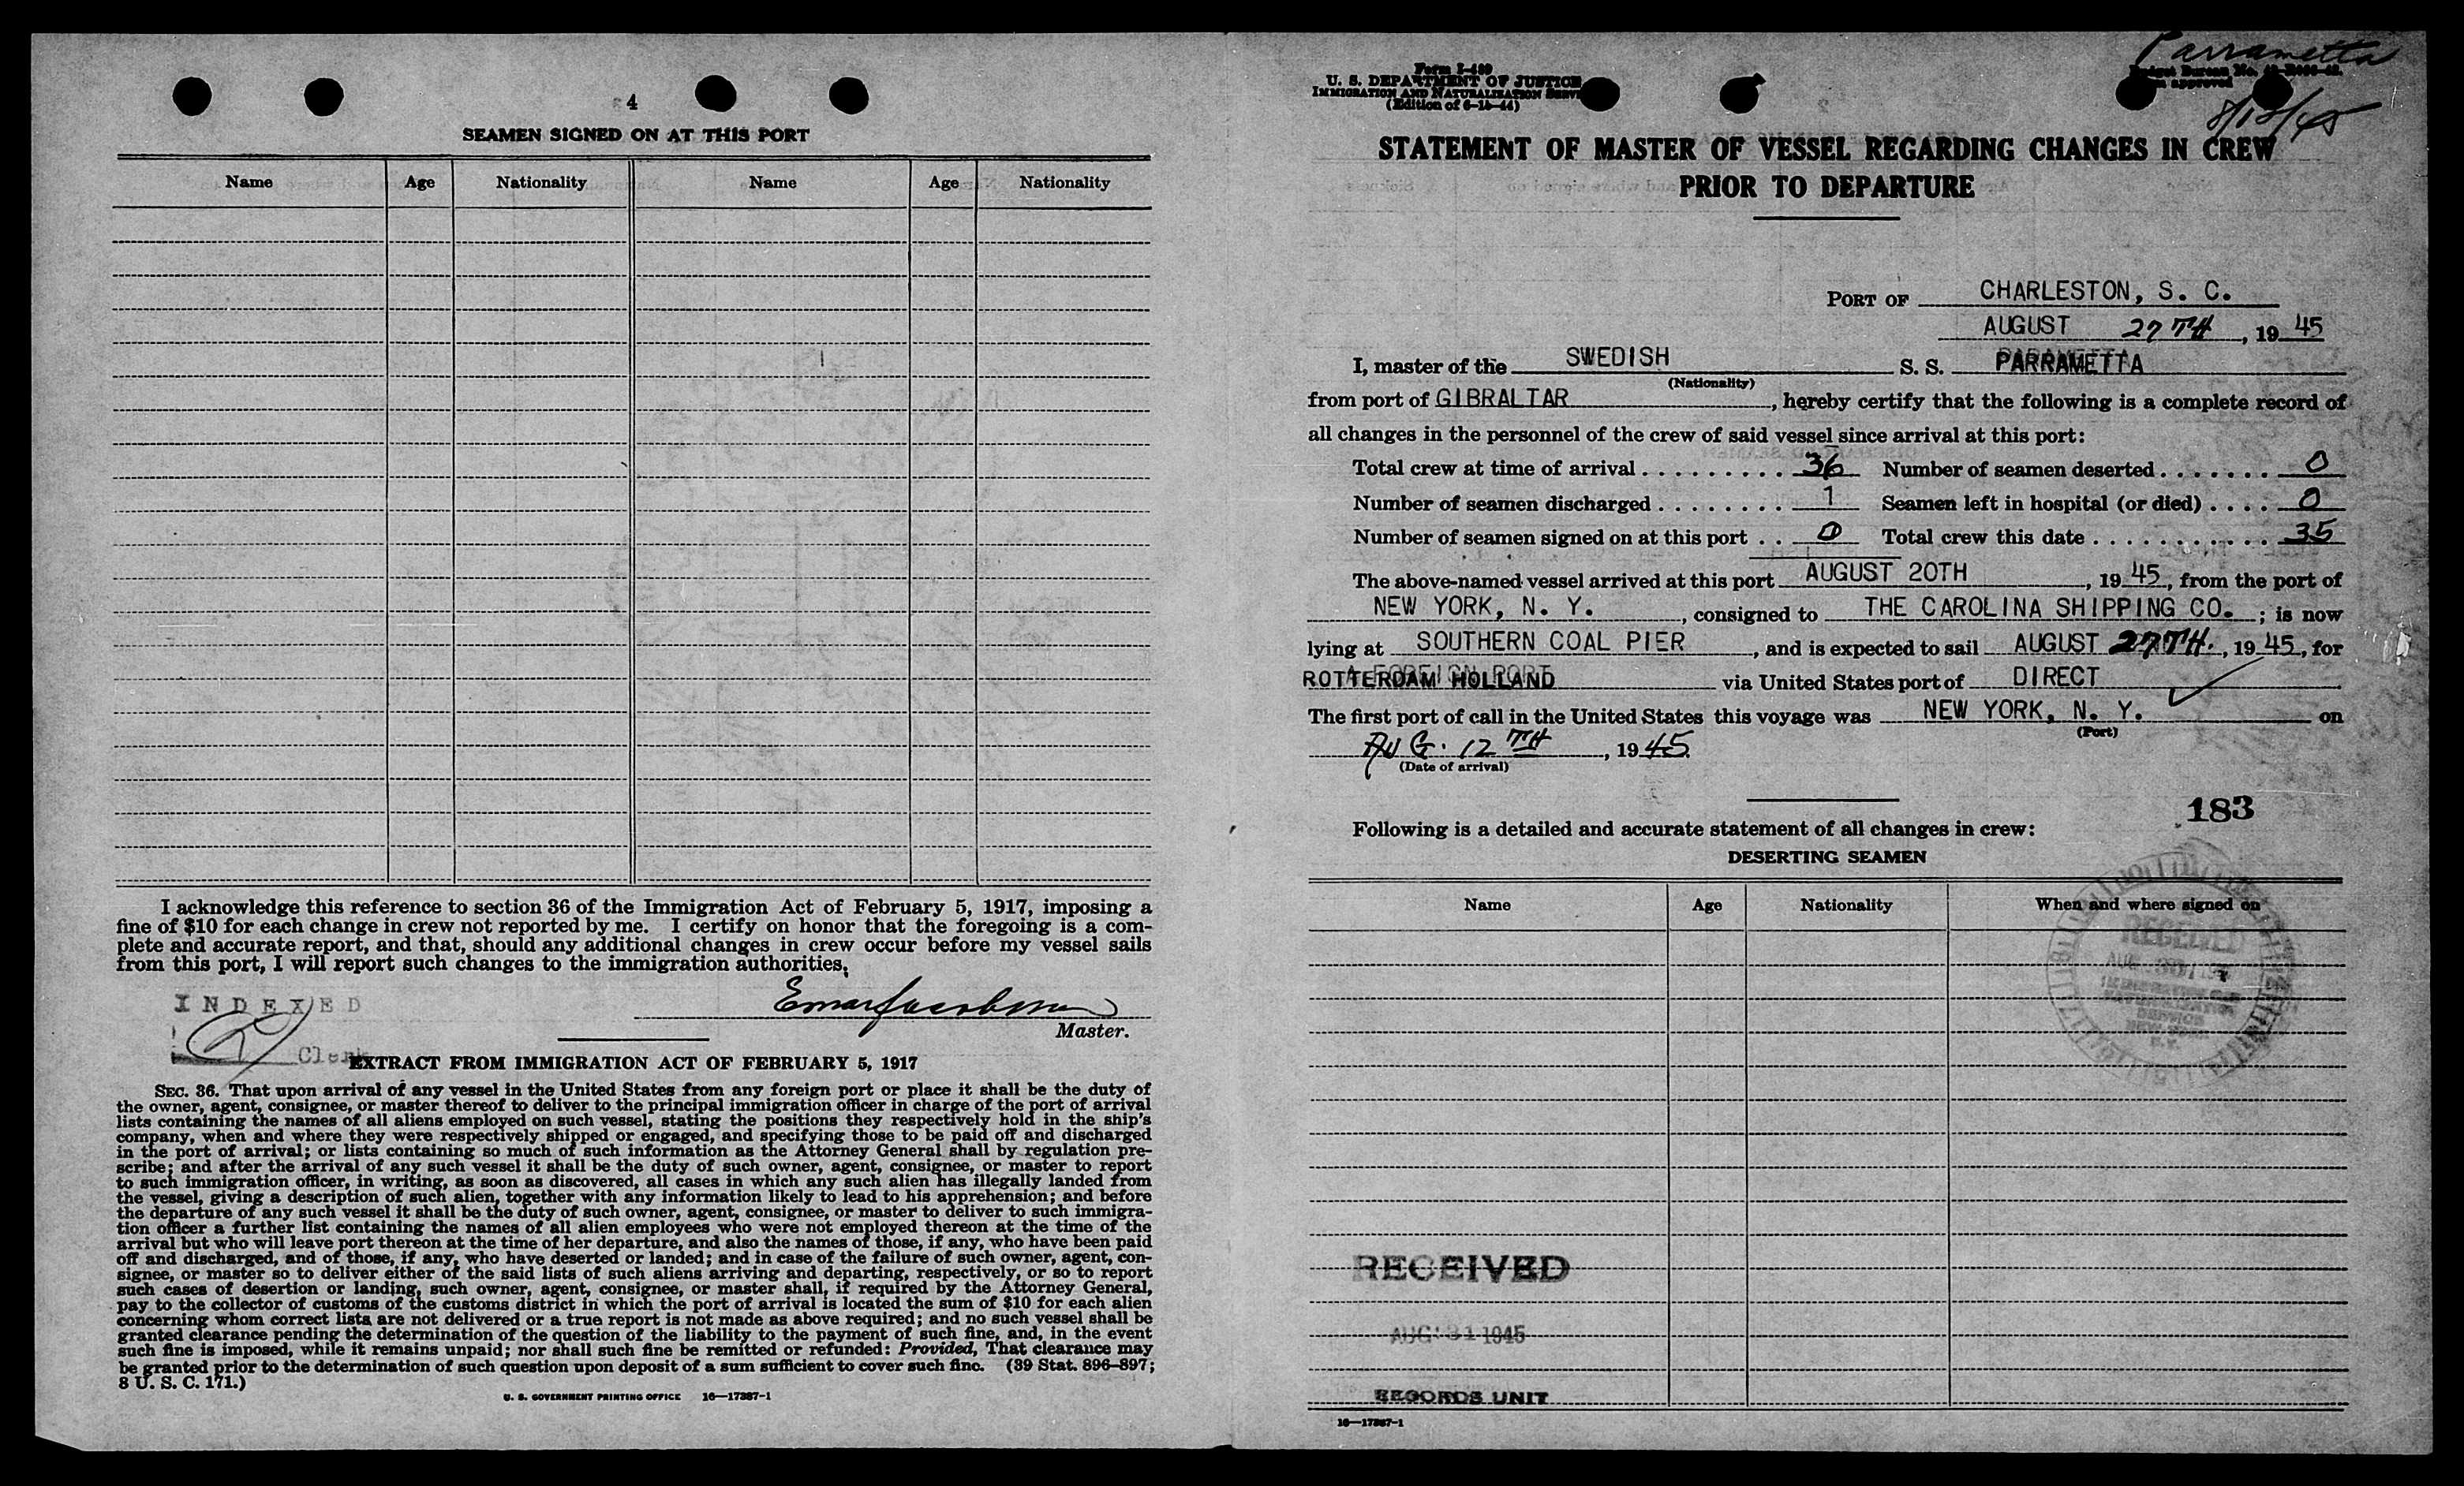 4
SEAMEN SIGNED ON AT THIS PORT
Name Age Nationality Name Age Nationality
I acknowledge this reference to section 36 of the Immigration Act of February 5, 1917, imposing a
fine of $10 for each change in crew not reported by me. I certify on honor that the foregoing is a com-
plete and accurate report, and that, should any additional changes in crew occur before my vessel sails
from this port, I will report such changes to the immigration authorities.
INDEXED
Master.
Clerk
EXTRACT FROM IMMIGRATION ACT OF FEBRUARY 5, 1917
SEC. 36. That upon arrival of any vessel in the United States from any foreign port or place it shall be the duty of
the owner, agent, consignee, or master thereof to deliver to the principal immigration officer in charge of the port of arrival
lists containing the names of all aliens employed on such vessel, stating the positions they respectively hold in the ship's
company, when and where they were respectively shipped or engaged, and specifying those to be paid off and discharged
in the port of arrival; or lists containing so much of such information as the Attorney General shall by regulation pre-
scribe; and after the arrival of any such vessel it shall be the duty of such owner, agent, consignee, or master to report
to such immigration officer, in writing, as soon as discovered, all cases in which any such alien has illegally landed from
the vessel, giving a description of such alien, together with any information likely to lead to his apprehension; and before
the departure of any such vessel it shall be the duty of such owner, agent, consignee, or master to deliver to such immigra-
tion officer a further list containing the names of all alien employees who were not employed thereon at the time of the
arrival but who will leave port thereon at the time of her departure, and also the names of those, if any, who have been paid
off and discharged, and of those, if any, who have deserted or landed; and in case of the failure of such owner, agent, con-
signee, or master so to deliver either of the said lists of such aliens arriving and departing, respectively, or so to report
such cases of desertion or landing, such owner, agent, consignee, or master shall, if required by the Attorney General,
pay to the collector of customs of the customs district in which the port of arrival is located the sum of $10 for each alien
concerning whom correct lists are not delivered or a true report is not made as above required; and no such vessel shall be
granted clearance pending the determination of the question of the liability to the payment of such fine, and, in the event
such fine is imposed, while it remains unpaid; nor shall such fine be remitted or refunded: Provided, That clearance may
be granted prior to the determination of such question upon deposit of a sum sufficient to cover such fine. (39 Stat. 896–897;
8 U. S. C. 171.)
U. S. GOVERNMENT PRINTING OFFICE 16—17387-1
Parrametta
Form I-489
U. S. DEPARTMENT OF JUSTICE
IMMIGRATION AND NATURALIZATION SERVICE
(Edition of 6-15-44)
STATEMENT OF MASTER OF VESSEL REGARDING CHANGES IN CREW
PRIOR TO DEPARTURE
PORT OF CHARLESTON, S. C.
AUGUST 27TH, 1945
I, master of the SWEDISH S. S. PARRAMETTA
(Nationality)
from port of GIBRALTAR, hereby certify that the following is a complete record of
all changes in the personnel of the crew of said vessel since arrival at this port:
Total crew at time of arrival 36 Number of seamen deserted 0
Number of seamen discharged 1 Seamen left in hospital (or died) 0
Number of seamen signed on at this port 0 Total crew this date 35
The above-named vessel arrived at this port AUGUST 20TH, 1945, from the port of
NEW YORK, N. Y., consigned to THE CAROLINA SHIPPING CO.; is now
lying at SOUTHERN COAL PIER, and is expected to sail AUGUST 27TH., 1945, for
ROTTERDAM HOLLAND via United States port of DIRECT
The first port of call in the United States this voyage was NEW YORK, N. Y. on
(Port)
AUG. 12TH, 1945
(Date of arrival)
183
Following is a detailed and accurate statement of all changes in crew:
DESERTING SEAMEN
Name Age Nationality When and where signed on
RECEIVED
RECEIVED
AUG 31 1945
RECORDS UNIT
16—17387-1